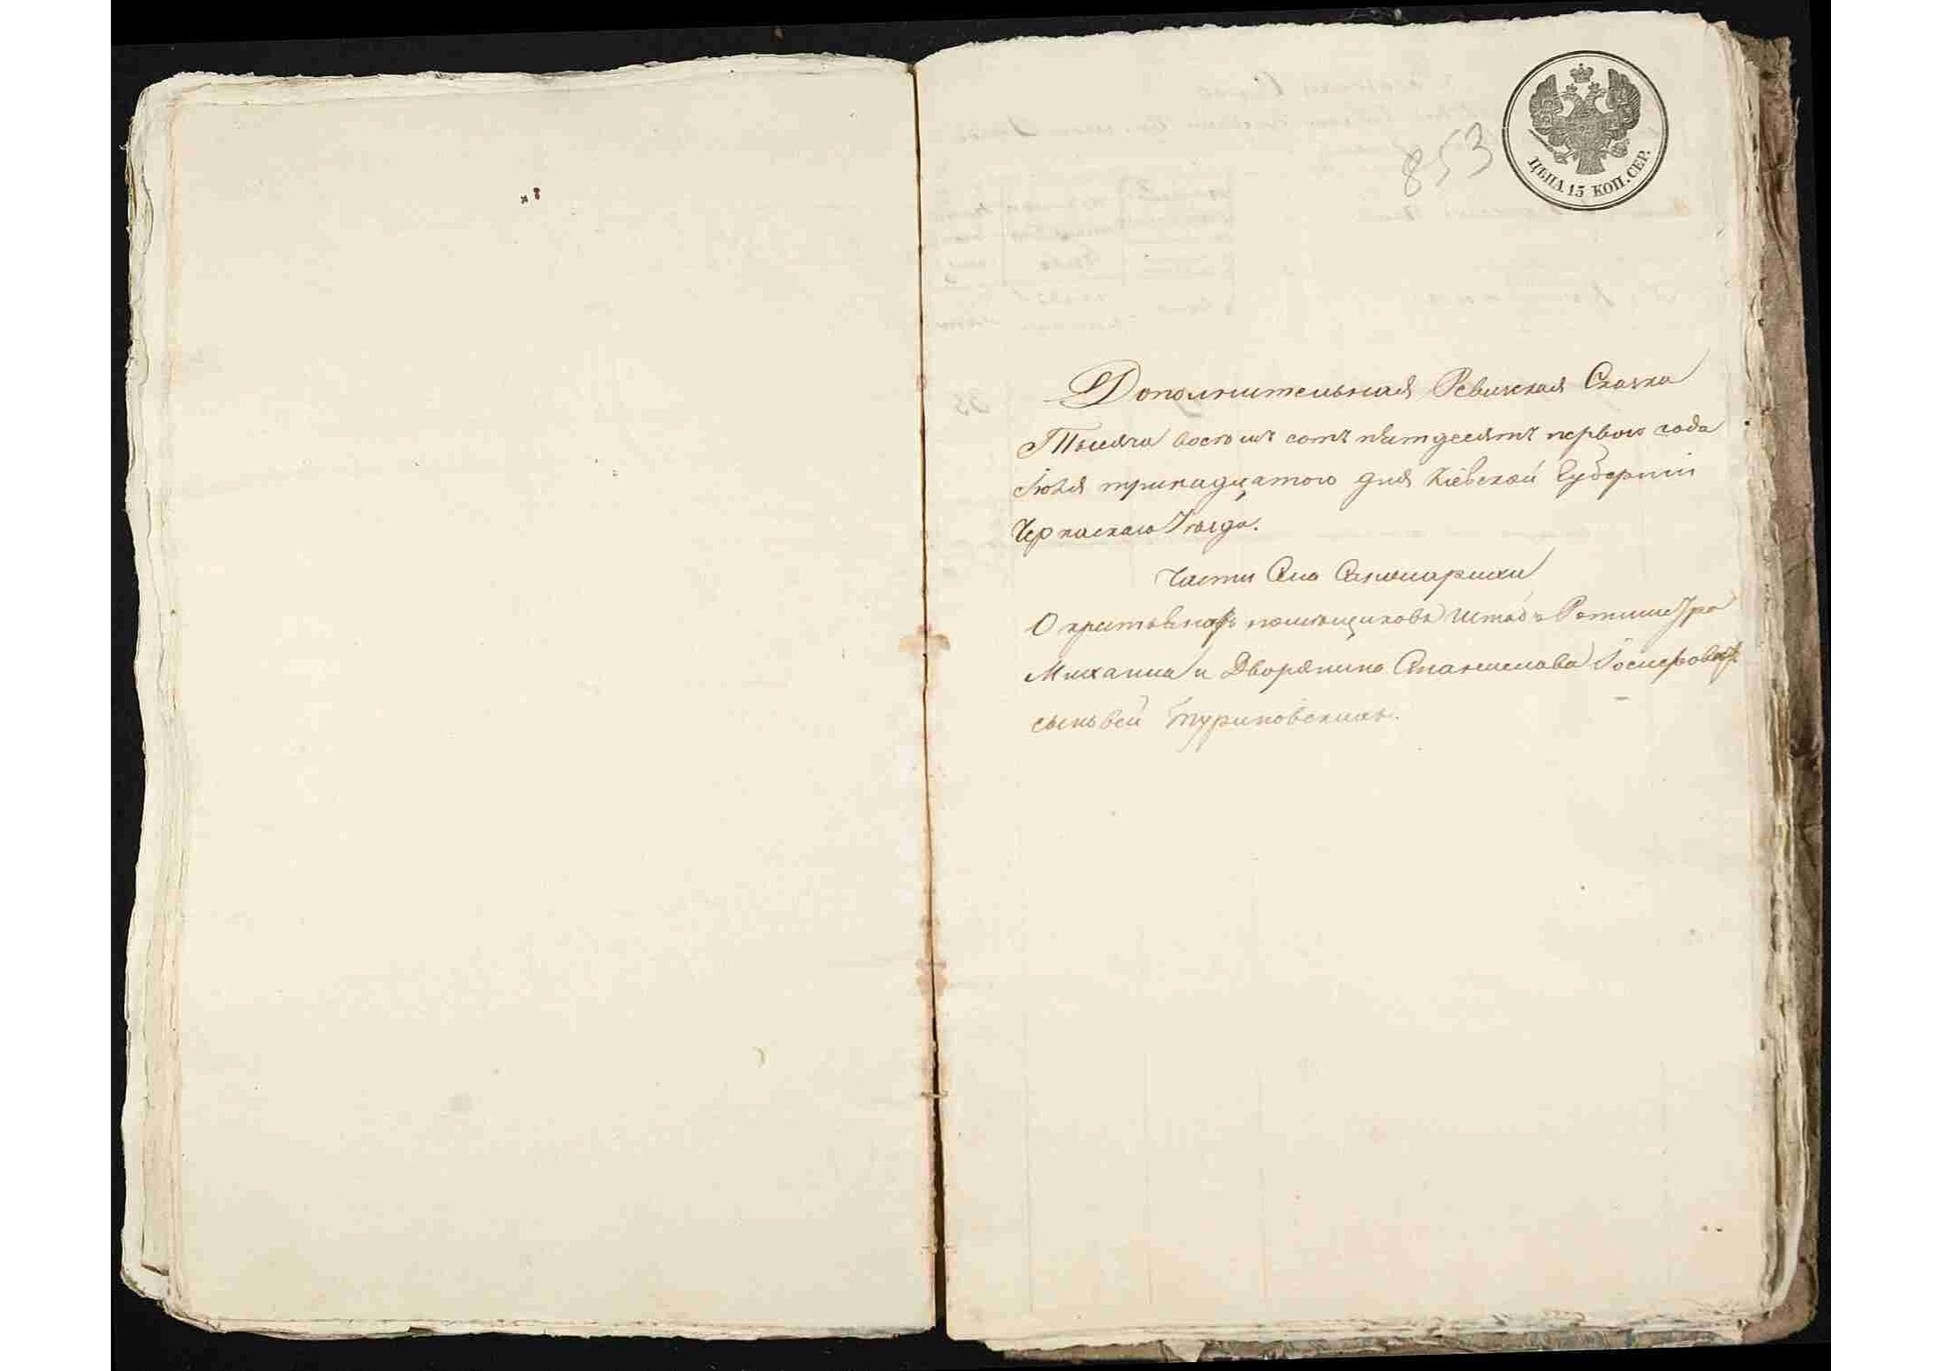 853
ЦѢНА 15 КОП. СЕР.
Дополнительная Ревизская Сказка
Тысяча восемь сотъ пятдесятъ первого года
Іюля тринадцатого дня Кіевской Губерніи
Черкаскаго Уѣзда.
Части Села
О крестьянахъ помѣщиковъ Штабъ Ротмистра
Михаила и Дворянина Станислава
сыновей